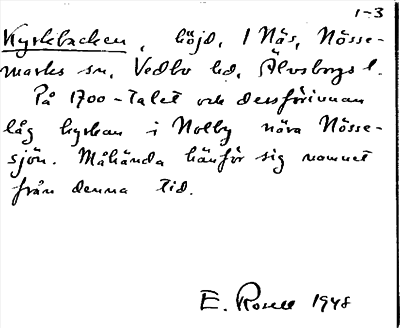 1-3
Kyrkbacken, höjd, 1 Näs, Nösse-
marks sn, Vedbo hd, Älvsborgs l.
På 1700-talet och dessförinnan
låg kyrkan i Nolby nära Nösse-
sjön. Måhända hänför sig namnet
från denna tid.
E. Rosell 1948